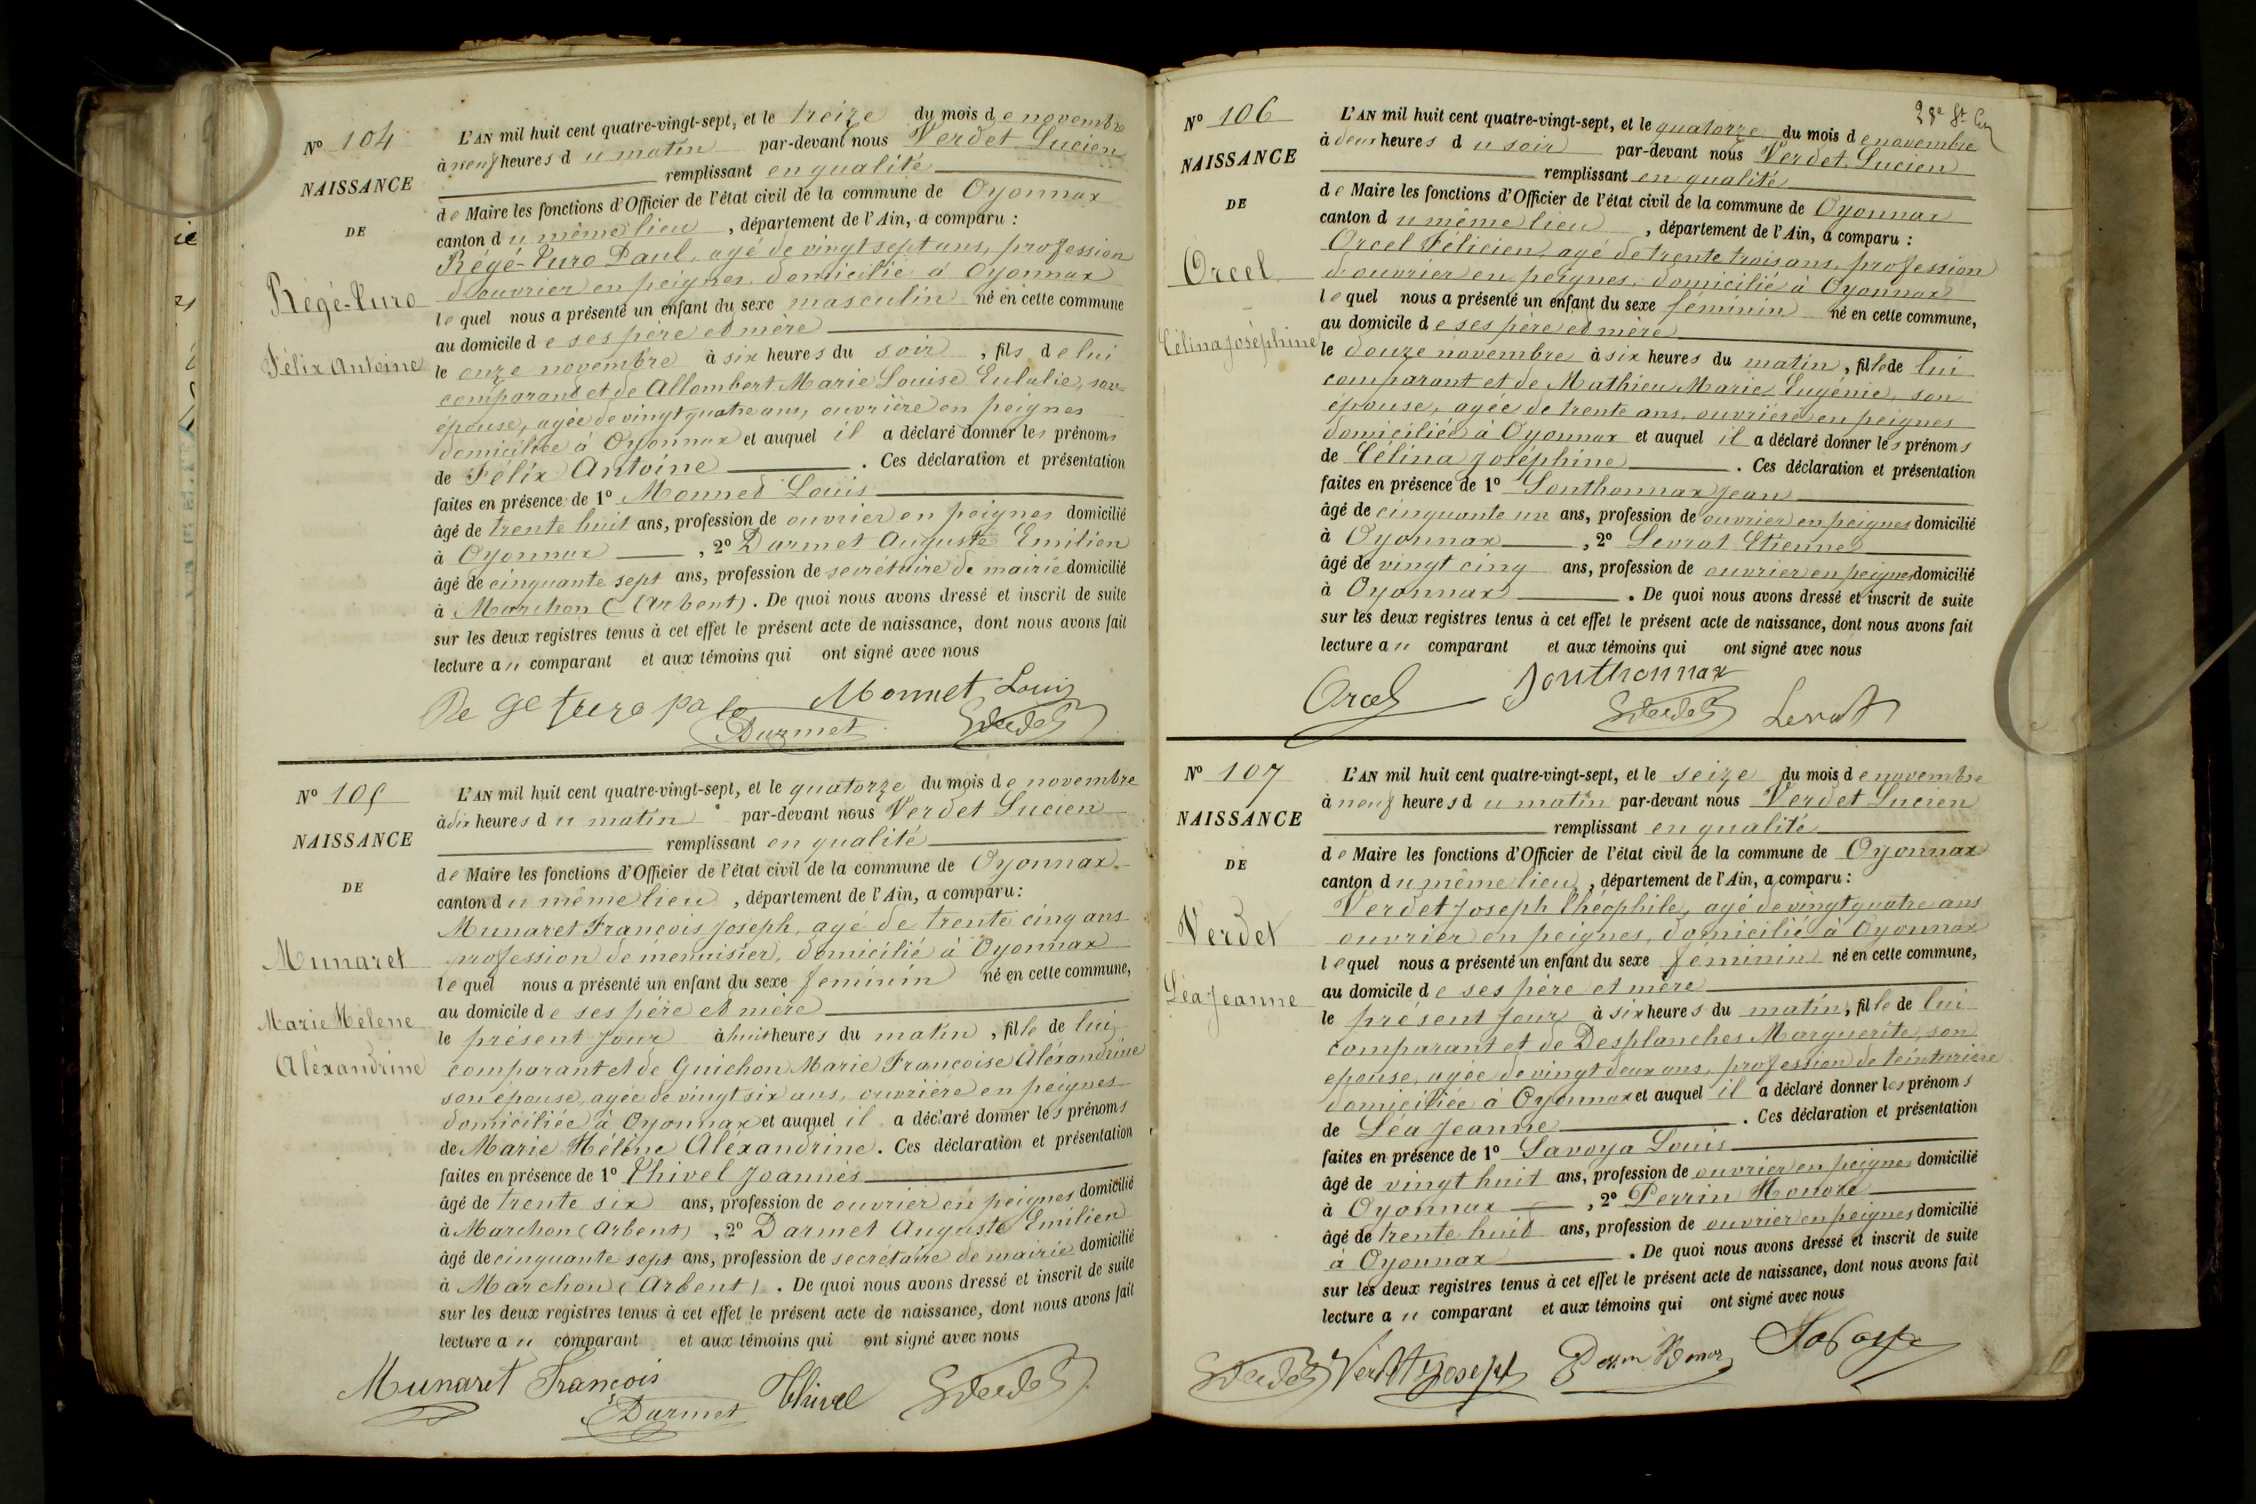 Nº 104
NAISSANCE
DE
Régé-Turo
Félix Antoine
L'AN mil huit cent quatre-vingt-sept, et le treize du mois de novembre
à neuf heures du matin par-devant nous Verdet Lucien
remplissant en qualité
de Maire les fonctions d'Officier de l'état civil de la commune de Oyonnax
canton du même lieu, département de l'Ain, a comparu :
Régé-Turo Paul, agé de vingt sept ans, profession
d'ouvrier en peignes, domicilié à Oyonnax
lequel nous a présenté un enfant du sexe masculin né en cette commune
au domicile de ses père et mère
le onze novembre à six heures du soir, fils de lui
comparant et de Allombert Marie Louise Eulalie, son
épouse, agée de vingt quatre ans, ouvrière en peignes
domiciliée à Oyonnax et auquel il a déclaré donner les prénoms
de Félix Antoine. Ces déclaration et présentation
faites en présence de 1º Monnet Louis
âgé de trente huit ans, profession de ouvrier en peignes domicilié
à Oyonnax, 2º Darmet Auguste Emilien
âgé de cinquante sept ans, profession de secrétaire de mairie domicilié
à Marchon (Arbent). De quoi nous avons dressé et inscrit de suite
sur les deux registres tenus à cet effet le présent acte de naissance, dont nous avons fait
lecture au comparant et aux témoins qui ont signé avec nous
Monnet Louis
Darmet
Nº 105
NAISSANCE
DE
Munaret
Marie Hélène
Aléxandrine
L'AN mil huit cent quatre-vingt-sept, et le quatorze du mois de novembre
à dix heures du matin par-devant nous Verdet Lucien
remplissant en qualité
de Maire les fonctions d'Officier de l'état civil de la commune de Oyonnax
canton du même lieu, département de l'Ain, a comparu :
Munaret François Joseph, agé de trente cinq ans
profession de menuisier, domicilié à Oyonnax
lequel nous a présenté un enfant du sexe féminin né en cette commune,
au domicile de ses père et mère
le présent jour à huit heures du matin, fille de lui
comparant et de Guichon Marie Françoise Aléxandrine
son épouse, agée de vingt six ans, ouvrière en peignes
domiciliée à Oyonnax et auquel il a déclaré donner les prénoms
de Marie Hélène Aléxandrine. Ces déclaration et présentation
faites en présence de 1º Thivel Joannès
âgé de trente six ans, profession de ouvrier en peignes domicilié
à Marchon (Arbent), 2º Darmet Auguste Emilien
âgé de cinquante sept ans, profession de secrétaire de mairie domicilié
à Marchon (Arbent). De quoi nous avons dressé et inscrit de suite
sur les deux registres tenus à cet effet le présent acte de naissance, dont nous avons fait
lecture au comparant et aux témoins qui ont signé avec nous
Munaret François
Darmet Thivel
Nº 106
NAISSANCE
DE
Orcel
Célina Joséphine
L'AN mil huit cent quatre-vingt-sept, et le quatorze du mois de novembre
à deux heures du soir par-devant nous Verdet Lucien
remplissant en qualité
de Maire les fonctions d'Officier de l'état civil de la commune de Oyonnax
canton du même lieu, département de l'Ain, a comparu :
Orcel Félicien, agé de trente trois ans, profession
d'ouvrier en peignes, domicilié à Oyonnax
lequel nous a présenté un enfant du sexe féminin né en cette commune,
au domicile de ses père et mère
le douze novembre à six heures du matin, fille de lui
comparant et de Mathieu Marie Eugénie, son
épouse, agée de trente ans, ouvrière en peignes
domiciliée à Oyonnax et auquel il a déclaré donner les prénoms
de Célina Joséphine. Ces déclaration et présentation
faites en présence de 1º Sonthonnax Jean
âgé de cinquante un ans, profession de ouvrier en peignes domicilié
à Oyonnax, 2º Levrat Etienne
âgé de vingt cinq ans, profession de ouvrier en peignes domicilié
à Oyonnax. De quoi nous avons dressé et inscrit de suite
sur les deux registres tenus à cet effet le présent acte de naissance, dont nous avons fait
lecture au comparant et aux témoins qui ont signé avec nous
Orcel Sonthonnax
Levrat
Nº 107
NAISSANCE
DE
Verdet
Léa Jeanne
L'AN mil huit cent quatre-vingt-sept, et le seize du mois de novembre
à neuf heures du matin par-devant nous Verdet Lucien
remplissant en qualité
de Maire les fonctions d'Officier de l'état civil de la commune de Oyonnax
canton du même lieu, département de l'Ain, a comparu :
Verdet Joseph Théophile, agé de vingt quatre ans
ouvrier en peignes, domicilié à Oyonnax
lequel nous a présenté un enfant du sexe féminin né en cette commune,
au domicile de ses père et mère
le présent jour à six heures du matin, fille de lui
comparant et de Desplanches Marguerite, son
épouse, agée de vingt deux ans, profession de teinturière
domiciliée à Oyonnax et auquel il a déclaré donner les prénoms
de Léa Jeanne. Ces déclaration et présentation
faites en présence de 1º Savoya Louis
âgé de vingt huit ans, profession de ouvrier en peignes domicilié
à Oyonnax, 2º Perrin Honoré
âgé de trente huit ans, profession de ouvrier en peignes domicilié
à Oyonnax. De quoi nous avons dressé et inscrit de suite
sur les deux registres tenus à cet effet le présent acte de naissance, dont nous avons fait
lecture au comparant et aux témoins qui ont signé avec nous
Verdet Joseph